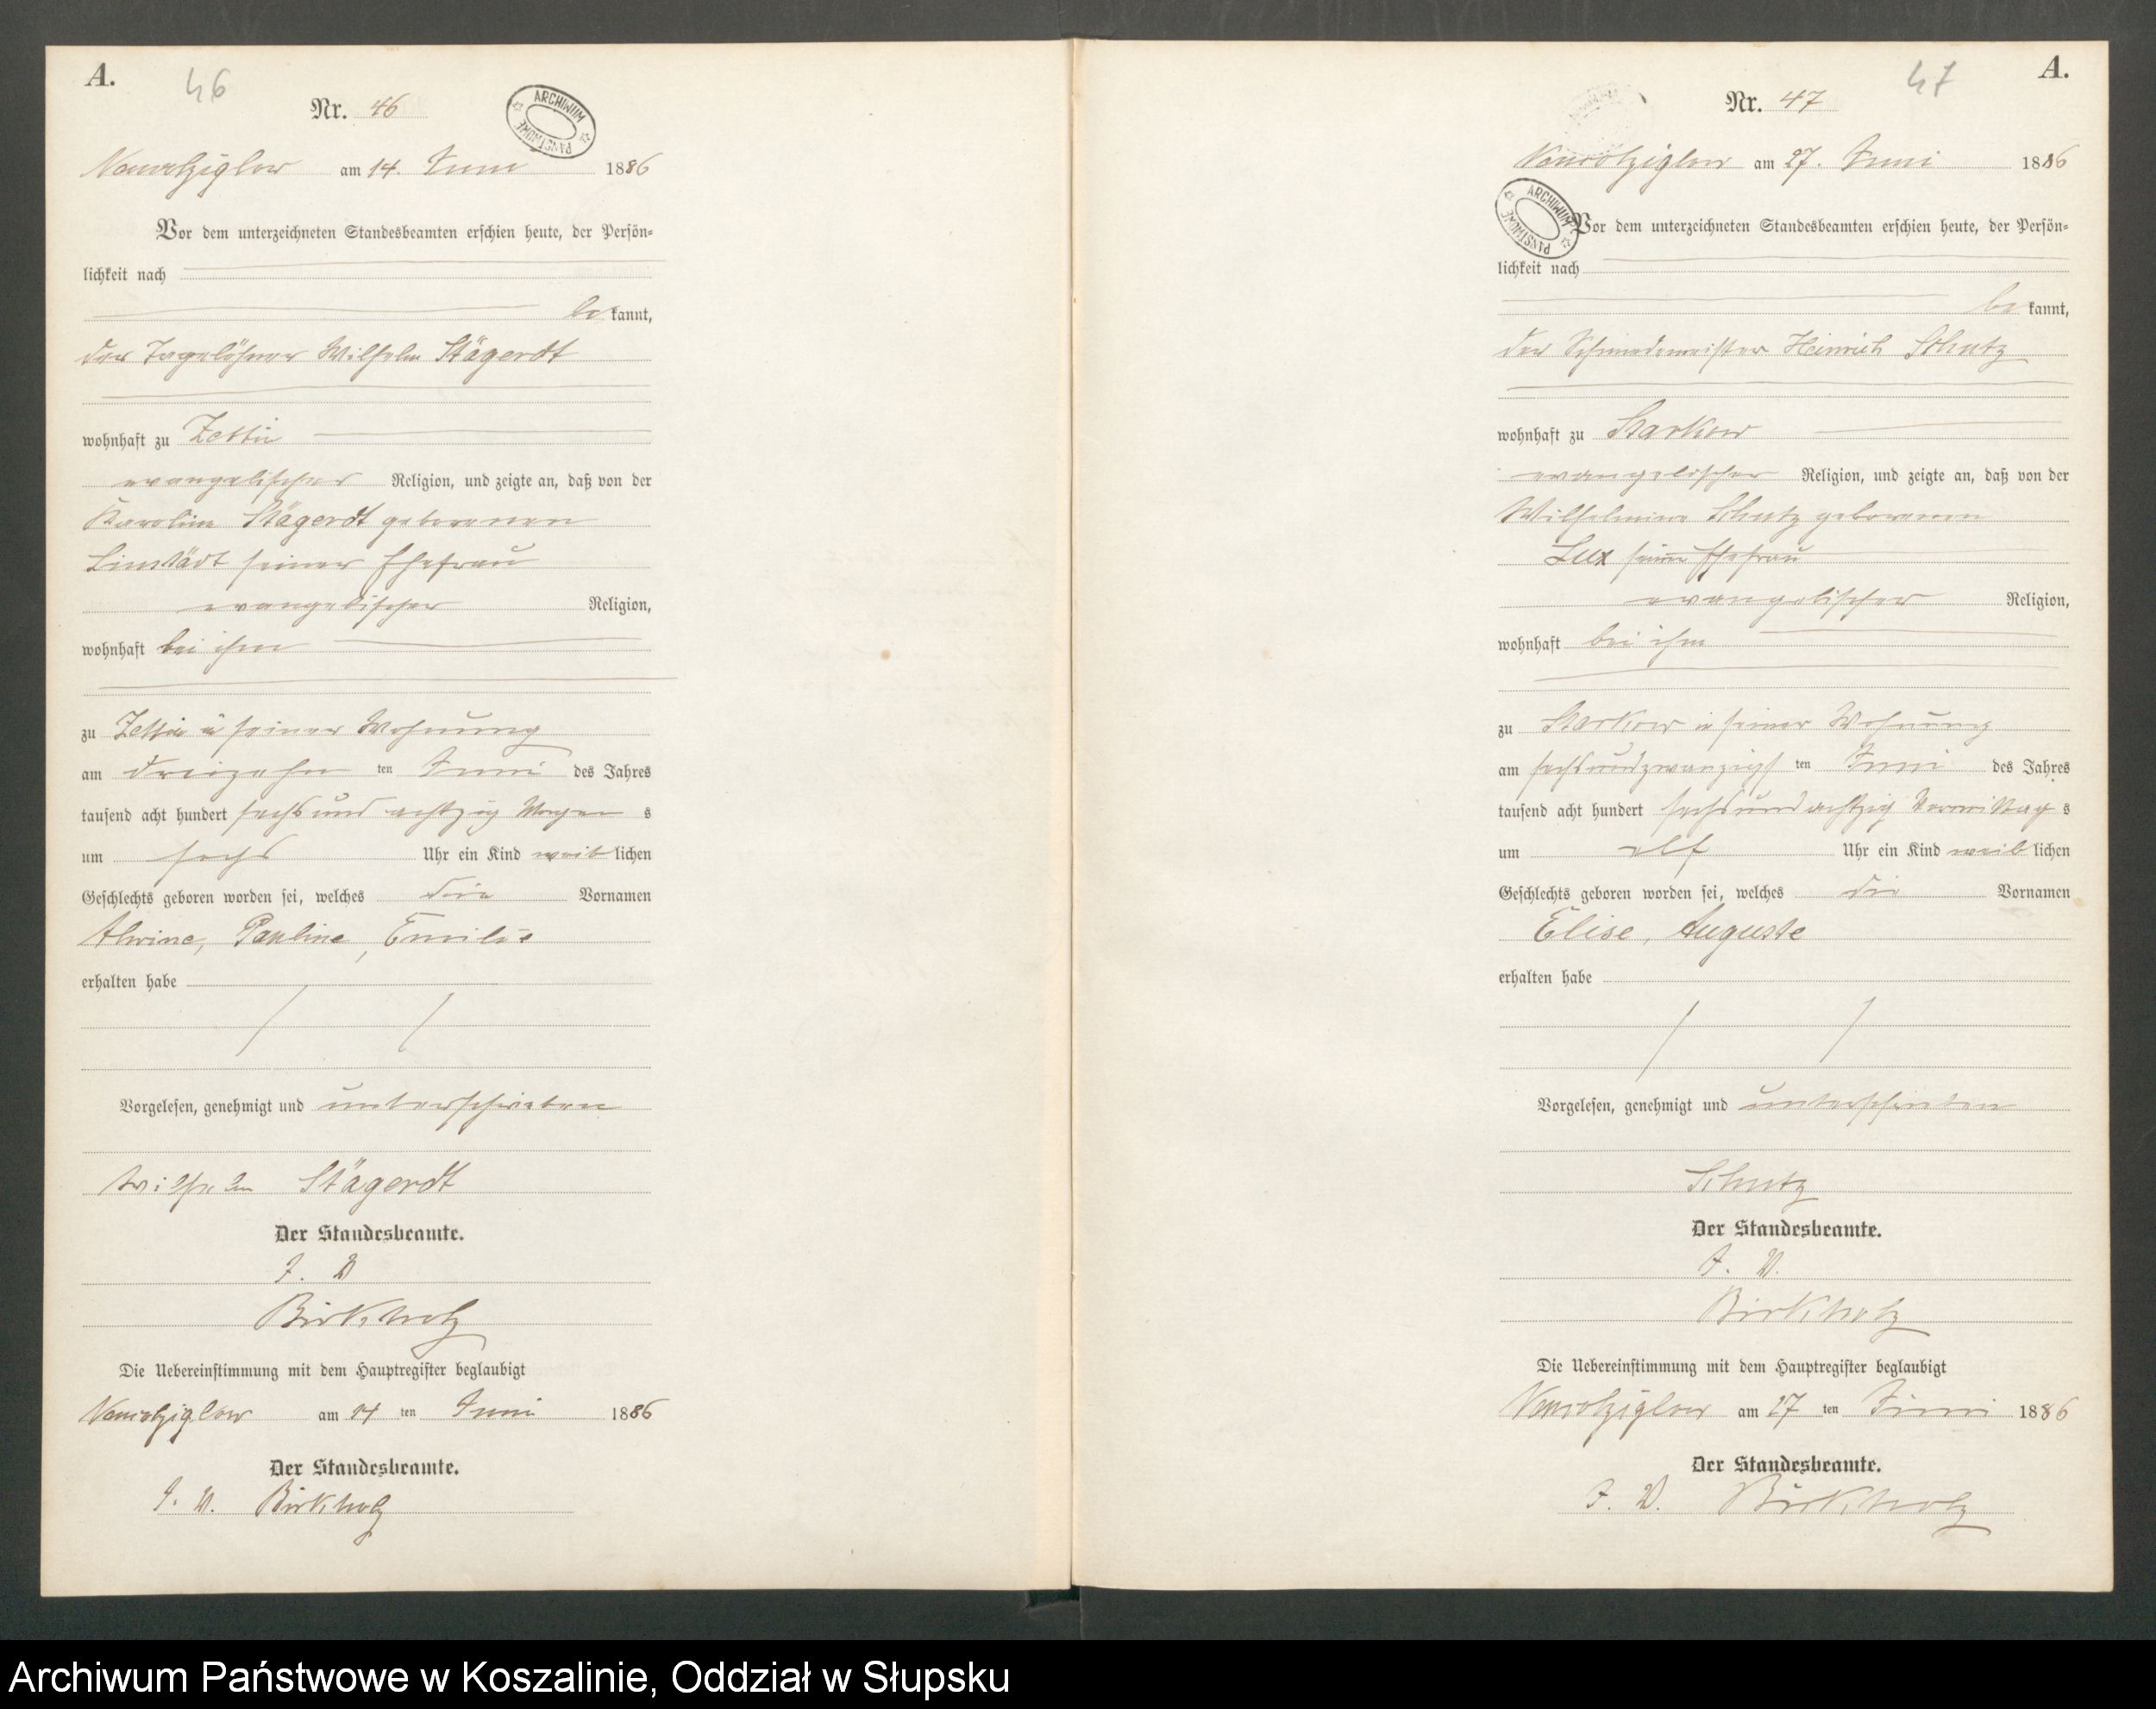 A.
46
Nr. 46
ARCHIWUM PAŃSTWOWE
Nemitzglow am 14. Juni 1886
Vor dem unterzeichneten Standesbeamten erschien heute, der Persön=
lichkeit nach
be kannt,
der Tagelöhner Wilhelm Stägerdt
wohnhaft zu Zettin
evangelischer Religion, und zeigte an, daß von der
Karoline Stägerdt geborenen
Linstädt seiner Ehefrau
evangelischer Religion,
wohnhaft bei ihm
zu Zettin in seiner Wohnung
am dreizehn ten Juni des Jahres
tausend acht hundert sechs und achtzig Morgen s
um sechs Uhr ein Kind weib lichen
Geschlechts geboren worden sei, welches die Vornamen
Alwine, Pauline, Emilie
erhalten habe
Vorgelesen, genehmigt und unterschrieben
Wilhelm Stägerdt
Der Standesbeamte.
J. V.
Birkholz
Die Uebereinstimmung mit dem Hauptregister beglaubigt
am 14 ten Juni 1886
Der Standesbeamte.
J. V. Birkholz
47
A.
Nr. 47
am 27. Juni 1886
ARCHIWUM PAŃSTWOWE
Vor dem unterzeichneten Standesbeamten erschien heute, der Persön=
lichkeit nach
be kannt,
der Schmiedemeister Heinrich Schutz
wohnhaft zu Starkow
evangelischer Religion, und zeigte an, daß von der
Wilhelmine Schutz geborenen
Lux seiner Ehefrau
evangelischer Religion,
wohnhaft bei ihm
zu Starkow in seiner Wohnung
am sechsundzwanzigs ten Juni des Jahres
tausend acht hundert sechs und achtzig Vormittag s
um elf Uhr ein Kind weib lichen
Geschlechts geboren worden sei, welches die Vornamen
Elise, Auguste
erhalten habe
Vorgelesen, genehmigt und unterschrieben
Schutz
Der Standesbeamte.
J. V.
Birkholz
Die Uebereinstimmung mit dem Hauptregister beglaubigt
am 27 ten Juni 1886
Der Standesbeamte.
J. V. Birkholz
Archiwum Państwowe w Koszalinie, Oddział w Słupsku